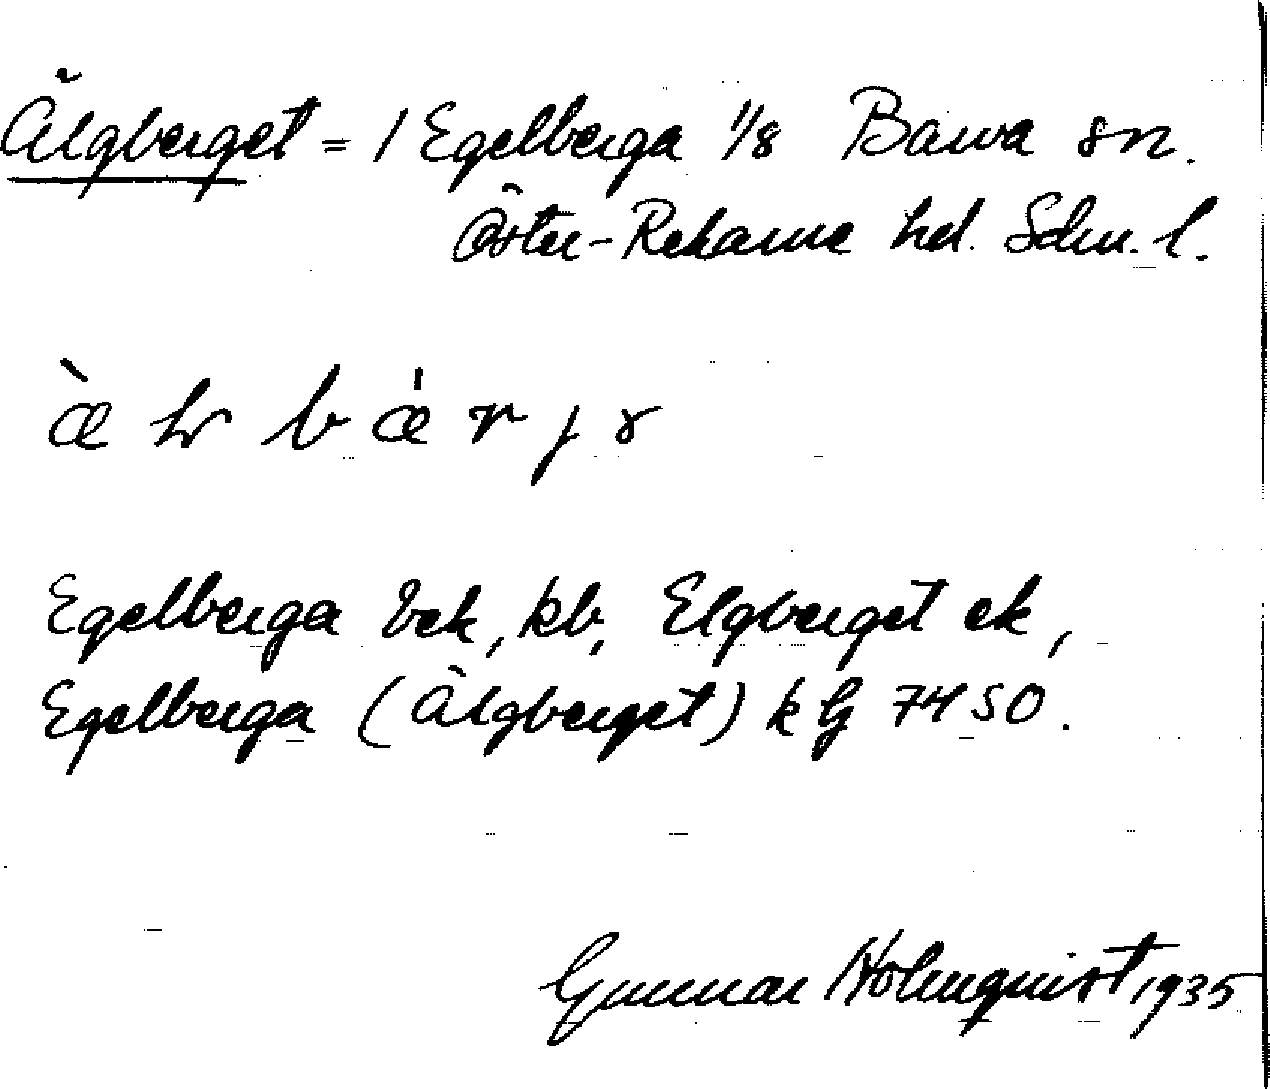 Älgberget = 1 Egelberga 1/8 Barva sn.
Öster-Rekarne hd. Sdm. l.
Egelberga bek, kb, Elgberget ek,
Egelberga (Älgberget) k Lj 7450.
Gunnar Holmquist 1935